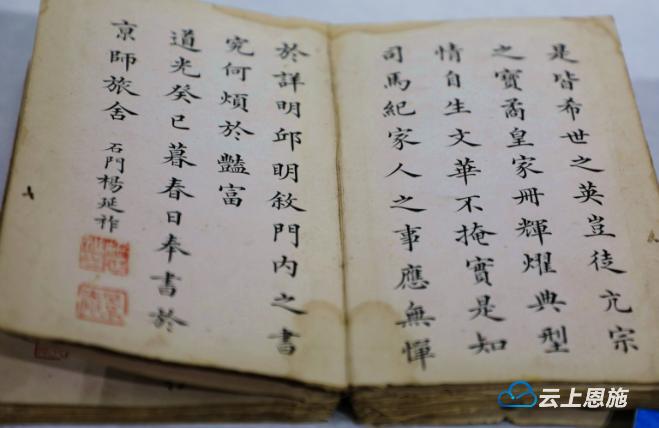 是皆希世之英豈徒亢宗
之寶矞皇家冊輝燿典型
情自生文華不掩實是知
司馬紀家人之事應無憚
於詳明邱明敘門內之書
究何煩於豔富
道光癸巳暮春日奉書於
京師旅舍 石門楊延祚
云上恩施